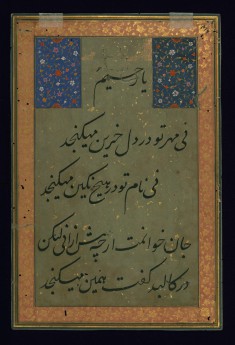 یا رحیم
نی مهر تو در دل حزین میگنجد
نی نام تو در هیچ نگین میگنجد
جان خوانمت ارچه پیش ازانی لیکن
در کالبد گفت همین میگنجد